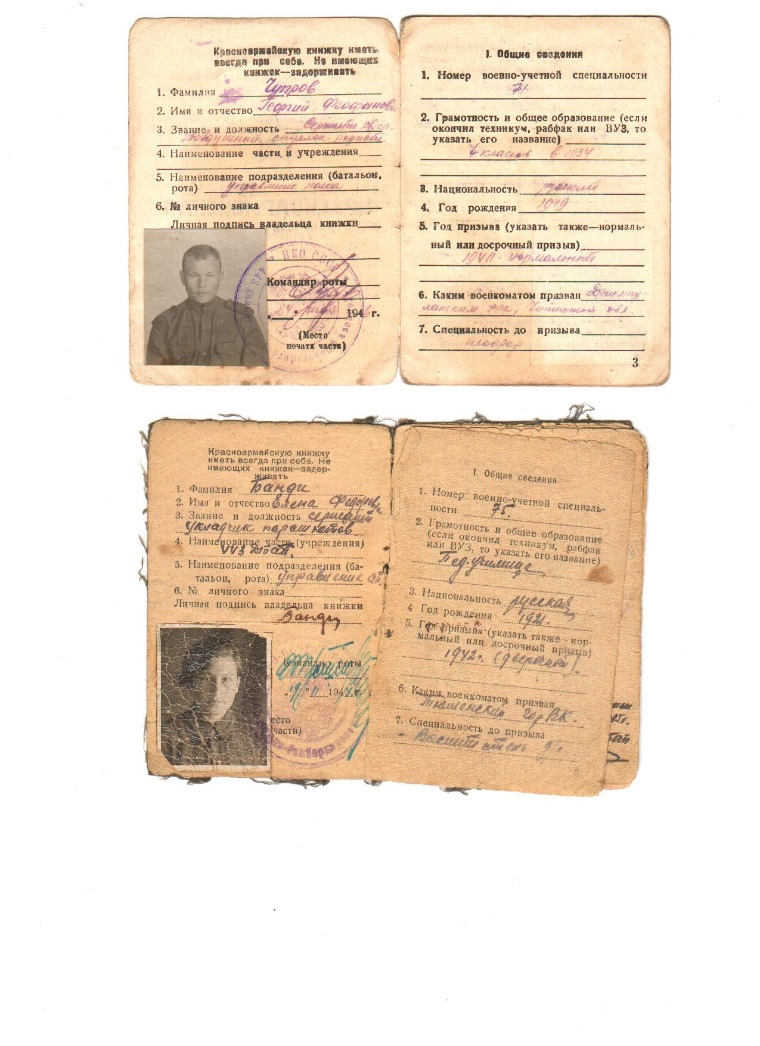 Красноармейскую книжку иметь
всегда при себе. Не имеющих
книжек—задерживать
1. Фамилия Чупров
2. Имя и отчество Георгий Феофанов
3. Звание и должность
воздушный стрелок-радист
4. Наименование части и учреждения
5. Наименование подразделения (батальон,
рота) управление полка
6. № личного знака
Личная подпись владельца книжки
Командир роты
24 1946 г.
(Место
печати части)
I. Общие сведения
1. Номер военно-учетной специальности
2. Грамотность и общее образование (если
окончил техникум, рабфак или ВУЗ, то
указать его название)
классов в 1934
3. Национальность русский
4. Год рождения 1919
5. Год призыва (указать также—нормаль-
ный или досрочный призыв)
1940 - нормальный
6. Каким военкоматом призван
РВК, Читинской обл.
7. Специальность до призыва
3
Красноармейскую книжку
иметь всегда при себе. Не
имеющих книжек—задер-
живать
1. Фамилия Банди
2. Имя и отчество Елена Федоровн
3. Звание и должность сержант
укладчик парашютов
4. Наименование части (учреждения)
5. Наименование подразделения (ба-
тальон, рота) управление
6. № личного знака
Личная подпись владельца книжки
Банди
Командир роты
194 г.
есто
части)
I. Общие сведения
1. Номер военно-учетной специаль-
ности 75
2. Грамотность и общее образование
(если окончил техникум, рабфак
или ВУЗ, то указать его название)
Пед. училище
3. Национальность русская
4 Год рождения 1921
5. Год призыва (указать также - нор-
мальный или досрочный призыв)
1942 г. (досрочный).
6. Каким военкоматом призван
Тюменский гор ВК.
7. Специальность до призыва
- Воспитатель